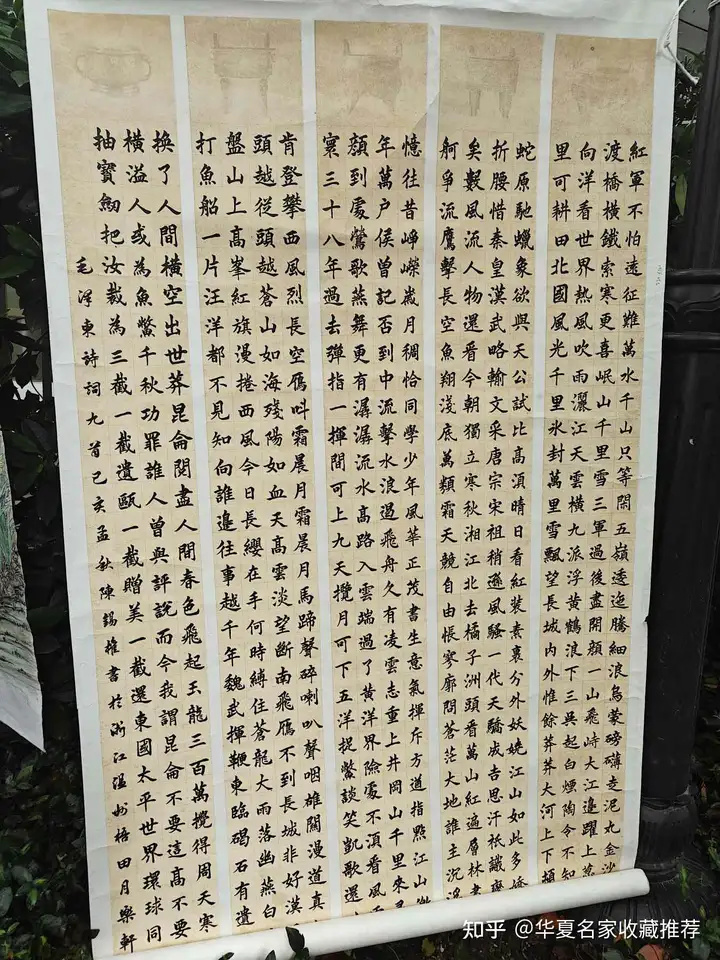 紅軍不怕遠征難萬水千山只等閑五嶺逶迤騰細浪烏蒙磅礴走泥丸金沙
渡橋橫鐵索寒更喜岷山千里雪三軍過後盡開顏一山飛峙大江邊躍上
向洋看世界熱風吹雨灑江天雲橫九派浮黃鶴浪下三吳起白煙陶令不知
里可耕田北國風光千里冰封萬里雪飄望長城內外惟餘莽莽大河上下頓
蛇原馳蠟象欲與天公試比高須晴日看紅裝素裹分外妖嬈江山如此多嬌
折腰惜秦皇漢武略輸文采唐宗宋祖稍遜風騷一代天驕成吉思汗衹識
矣數風流人物還看今朝獨立寒秋湘江北去橘子洲頭看萬山紅遍層林
舸爭流鷹擊長空魚翔淺底萬類霜天競自由悵寥廓問蒼茫大地誰主沉
憶往昔崢嶸歲月稠恰同學少年風華正茂書生意氣揮斥方遒指點江山
年萬户侯曾記否到中流擊水浪遏飛舟久有凌雲志重上井岡山千里來
顏到處鶯歌燕舞更有潺潺流水高路入雲端過了黃洋界險處不須看風
寰三十八年過去彈指一揮間可上九天攬月可下五洋捉鱉談笑凱歌還
肯登攀西風烈長空雁叫霜晨月霜晨月馬蹄聲碎喇叭聲咽雄關漫道真
頭越從頭越蒼山如海殘陽如血天高雲淡望斷南飛雁不到長城非好漢
盤山上高峯紅旗漫捲西風今日長纓在手何時縛住蒼龍大雨落幽燕白
打魚船一片汪洋都不見知向誰邊往事越千年魏武揮鞭東臨碣石有遺
換了人間橫空出世莽昆侖閱盡人間春色飛起玉龍三百萬攪得周天寒
橫溢人或為魚鱉千秋功罪誰人曾與評說而今我謂昆侖不要這高不要
抽寶劍把汝裁為三截一截遺歐一截贈美一截還東國太平世界環球同
毛澤東詩詞九首己亥孟秋陳錫雄書於浙江溫州梧田月樂軒
知乎 @华夏名家收藏推荐